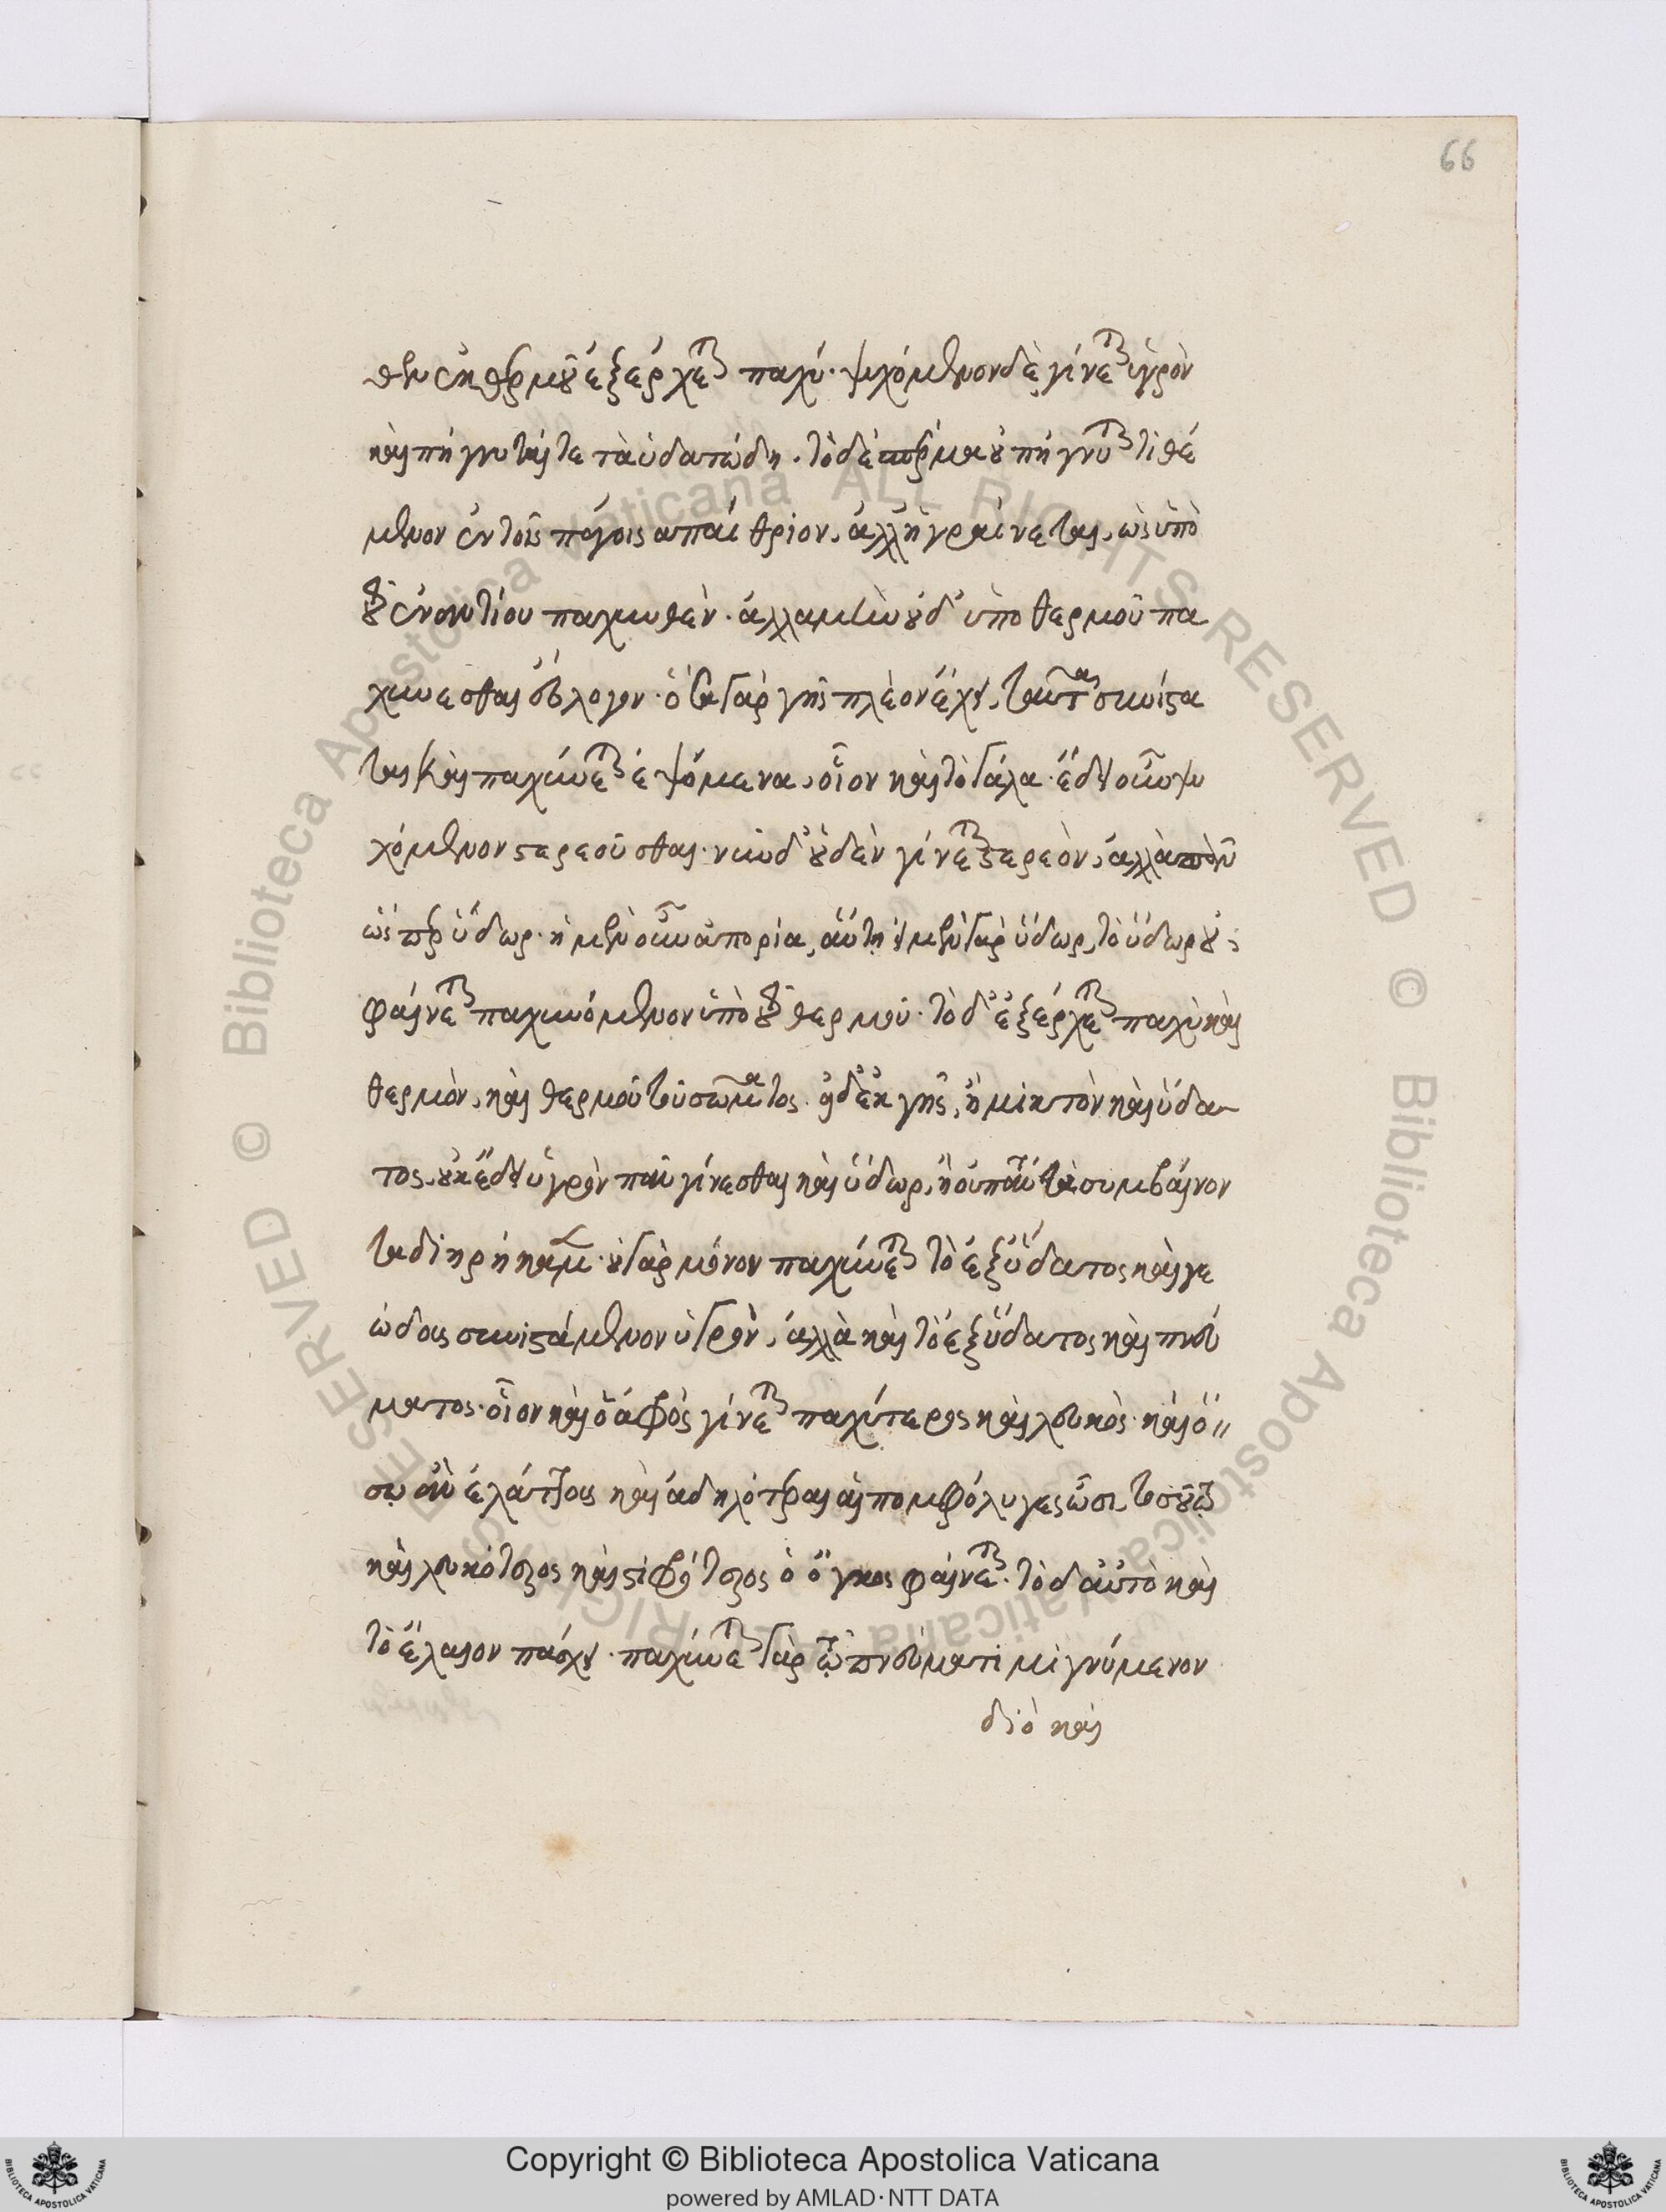 66
θεν ἐκ θερμοῦ ἐξέρχεται παχύ. ψυχόμενον δὲ γίνεται ὑγρὸν
καὶ πήγνυταί τε τὰ ὑδατώδη. τὸ δὲ σπέρμα οὐ πήγνυται τιθέ
μενον ἐν τοῖς πάγοις αἰπαίθριον, ἀλλ' ὑγραίνεται, ὡς ὑπὸ
τοῦ ἐναντίου παχυνθὲν. ἀλλὰ μὴν οὐδ' ὑπὸ θερμοῦ πα
χύνεσθαι εὔλογον. ὅσα γὰρ γῆς πλέον ἔχει, ταῦτα συνίστα
ται καὶ παχύνεται ἑψόμενα, οἷον καὶ τὸ γάλα. ἔδει οὖν ψυ
χόμενον στερεοῦσθαι. νῦν δ' οὐδὲν γίνεται στερεὸν, ἀλλὰ πᾶν
ὥσπερ ὕδωρ. ἡ μὲν οὖν ἀπορία, αὕτη εἰ μὲν γὰρ ὕδωρ, τὸ ὕδωρ οὐ
φαίνεται παχυνόμενον ὑπὸ τοῦ θερμοῦ. τὸ δ' ἐξέρχεται παχὺ καὶ
θερμὸν, καὶ θερμοῦ τοῦ σώματος. εἰ δ' ἐκ γῆς, ἢ μικτὸν καὶ ὕδα
τος, οὐκ ἔδει ὑγρὸν πᾶν γίνεσθαι καὶ ὕδωρ, ἢ οὐ πάντα συμβαίνον
τα διηρήκαμεν. οὐ γὰρ μόνον παχύνεται τὸ ἐξ ὕδατος καὶ γε
ώδους συνιστάμενον ὑγρὸν, ἀλλὰ καὶ τὸ ἐξ ὕδατος καὶ πνεύ
ματος. οἷον καὶ ὁ ἀφρὸς γίνεται παχύτερος καὶ λευκὸς. καὶ ὅ
σῳ ἂν ἐλάττους καὶ ἀδηλότεραι αἱ πομφόλυγες ὦσι, τοσούτῳ
καὶ λευκότερος καὶ στιφρότερος ὁ ὄγκος φαίνεται. τὸ δ' αὐτὸ καὶ
τὸ ἔλαιον πάσχει. παχύνεται γὰρ τῷ πνεύματι μιγνύμενον
διὸ καὶ
Copyright © Biblioteca Apostolica Vaticana
powered by AMLAD·NTT DATA